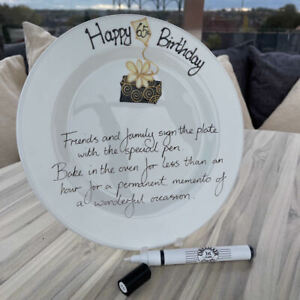 Happy 65th Birthday
Friends and family sign the plate
with the special pen
Bake in the oven for less than an
hour for a permanent memento of
a wonderful occasion..